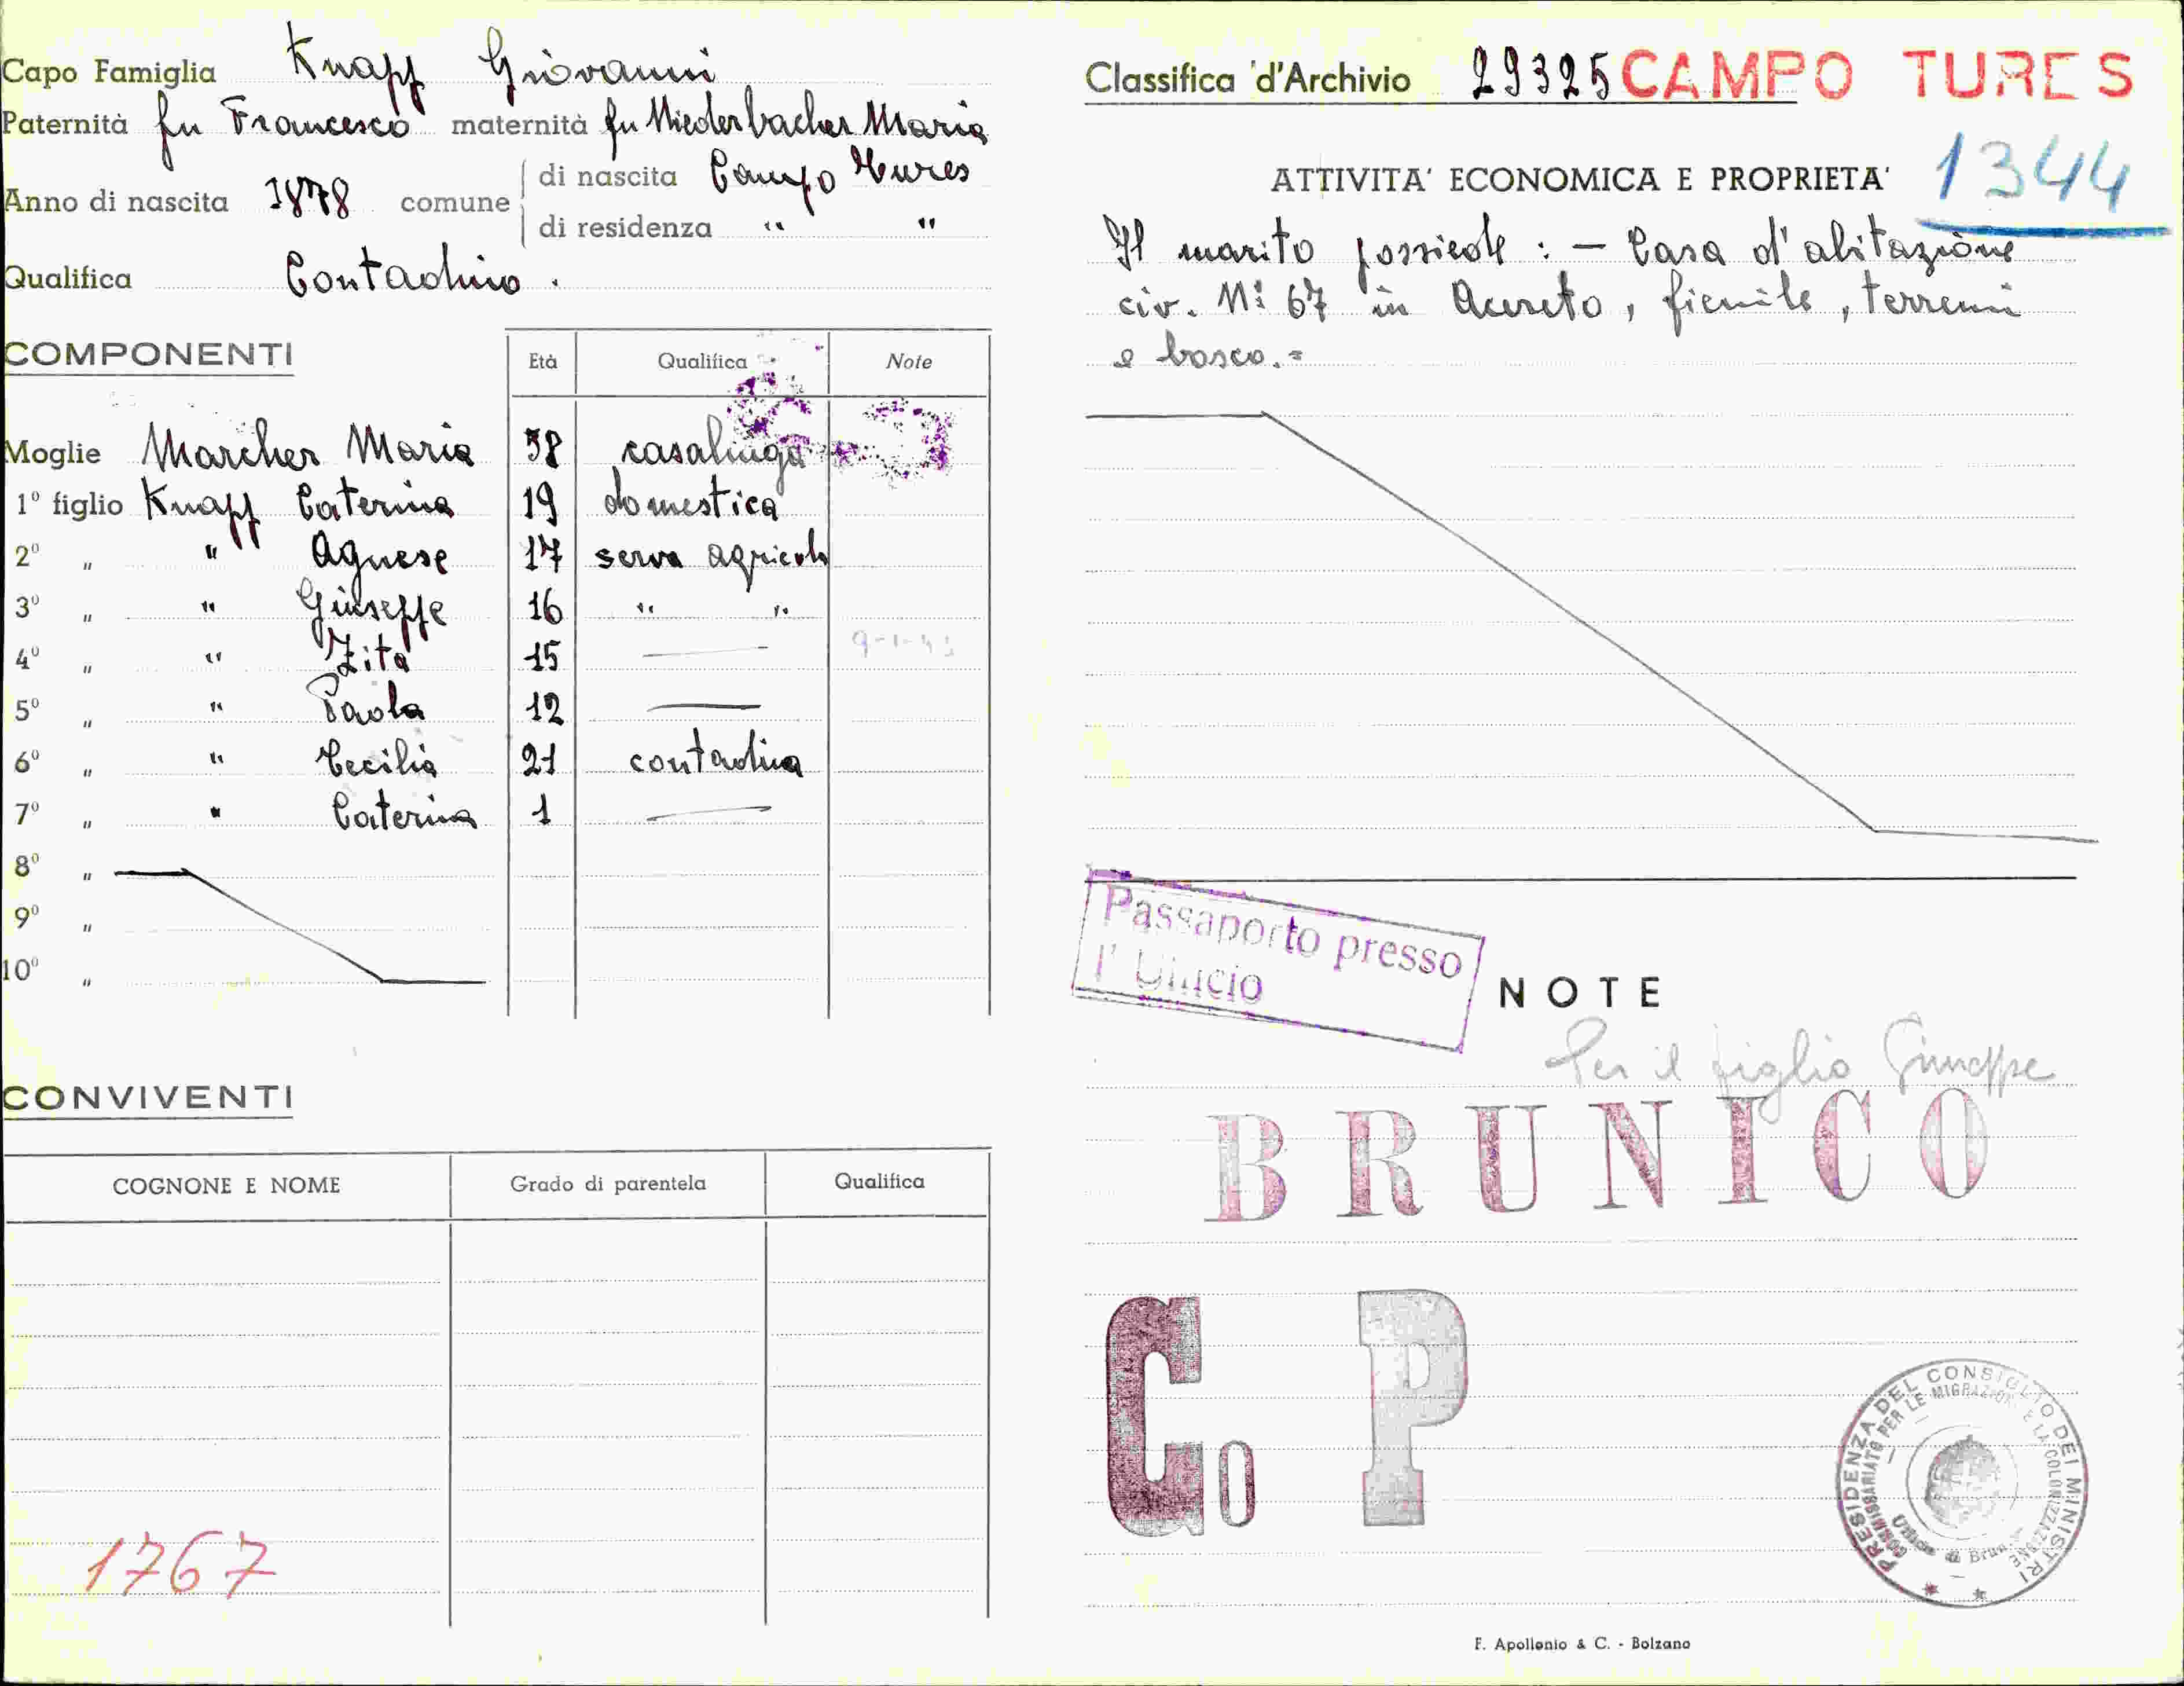 Capo Famiglia Knapp Giovanni
Paternità fu Francesco maternità fu Niederbacher Maria
Anno di nascita 1878 comune di nascita Campo Tures
di residenza " "
Qualifica Contadino .
COMPONENTI Età Qualifica Note
Moglie Marcher Maria 58 casalinga
1° figlio Knapp Caterina 19 domestica
2° " " Agnese 17 serva agricola
3° " " Giuseppe 16 " "
4° " " Zita 15 9-1-43
5° " " Paola 12
6° " " Cecilia 21 contadina
7° " " Caterina 1
8° "
9° "
10° "
CONVIVENTI
COGNONE E NOME Grado di parentela Qualifica
1767
Classifica d'Archivio 29325 CAMPO TURES
1344
ATTIVITA' ECONOMICA E PROPRIETA'
Il marito possiede : — Casa d'abitazione
civ. N° 67 in Acereto, fienile, terreni
e bosco. =
Passaporto presso
l' Ufficio
NOTE
Per il figlio Giuseppe
BRUNICO
Co P
PRESIDENZA DEL CONSIGLIO DEI MINISTRI
COMMISSARIATO PER LE MIGRAZIONI E LA COLONIZZAZIONE
Ufficio di Brunico
F. Apollonio & C. - Bolzano